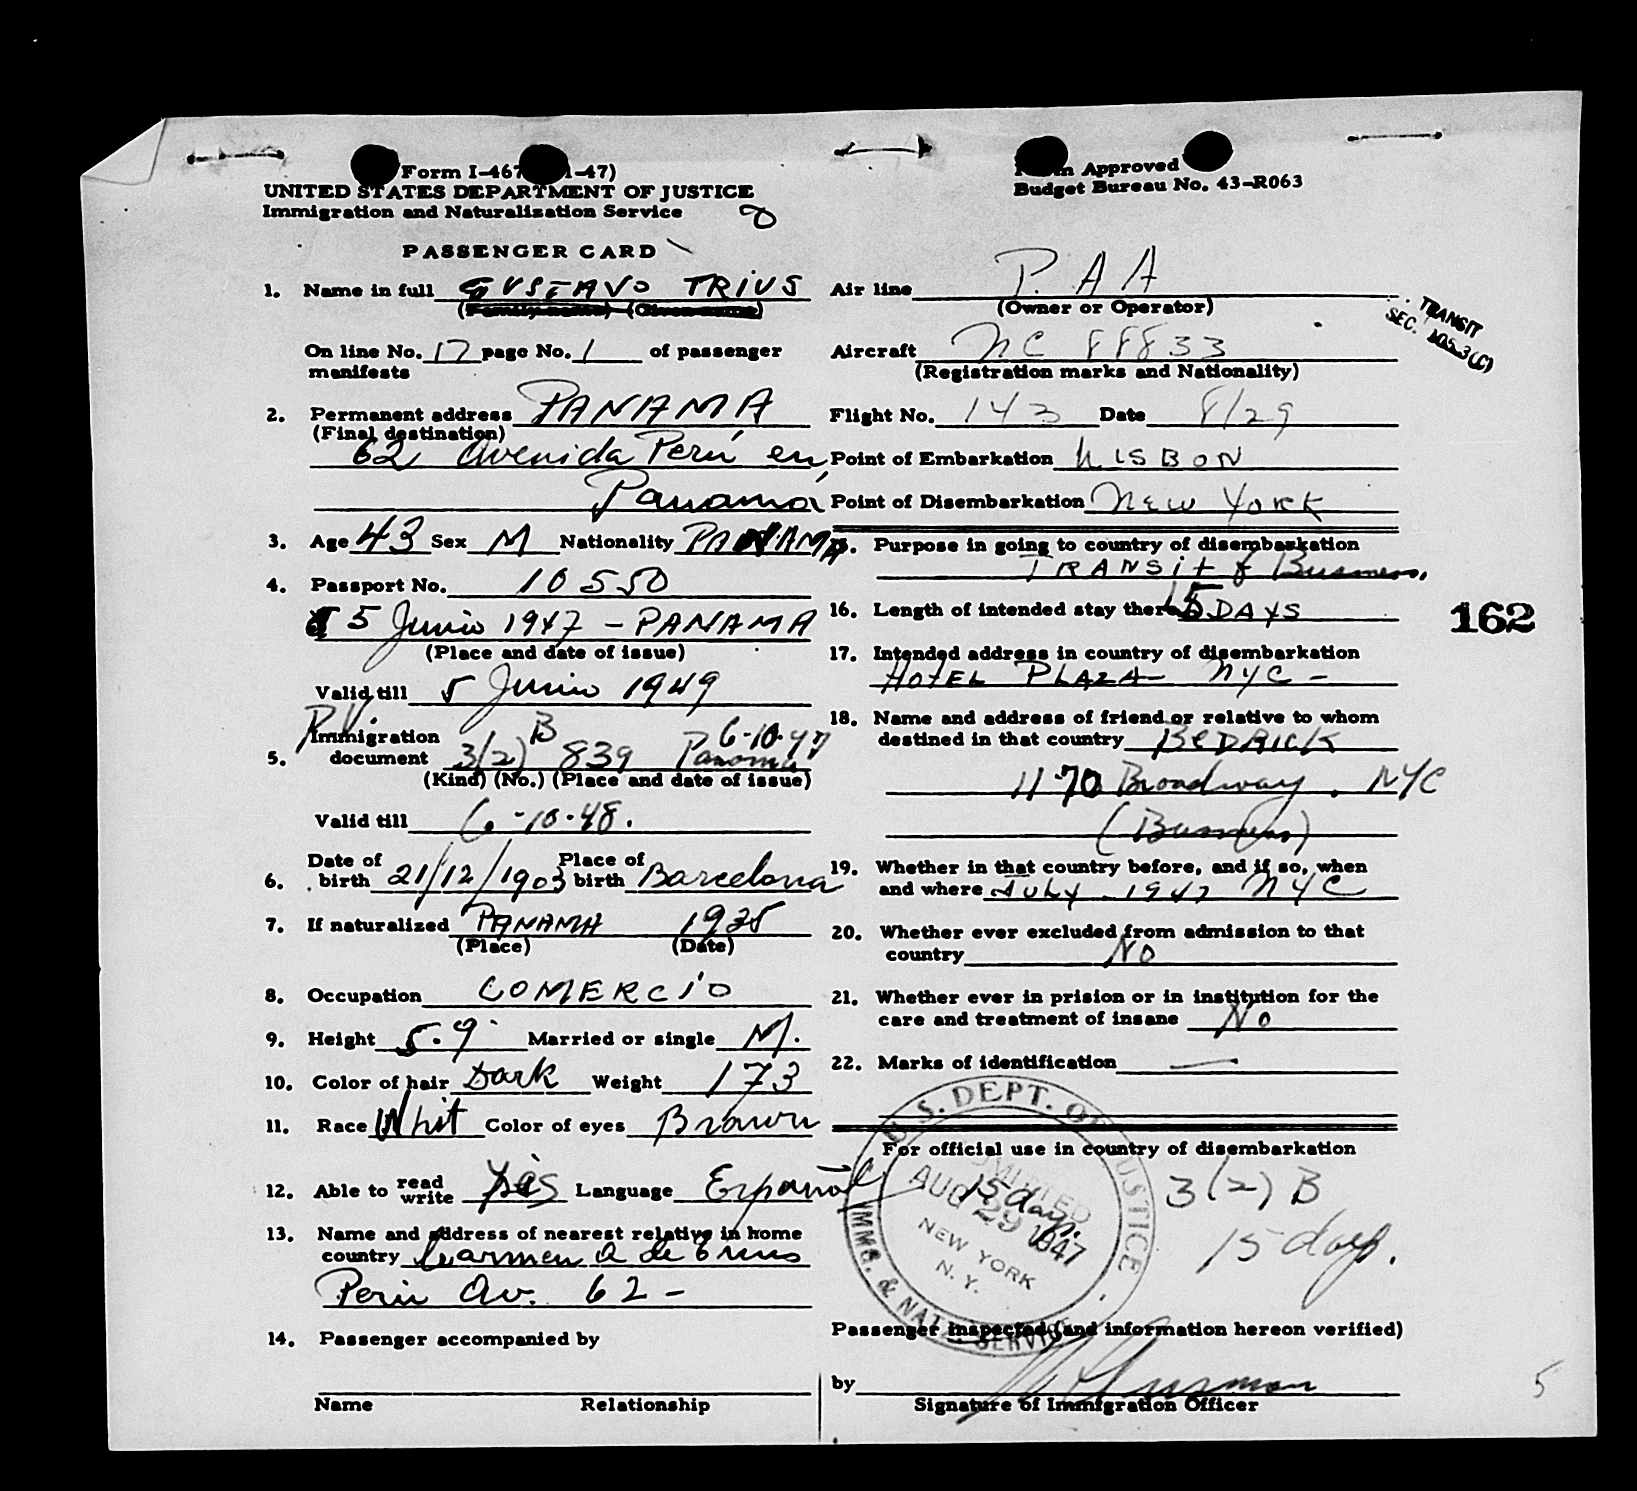 Form I-467 1-47)
UNITED STATES DEPARTMENT OF JUSTICE
Immigration and Naturalization Service
PASSENGER CARD
1. Name in full GUSTAVO TRIUS
(Family name) (Given name)
On line No. 17 page No. 1 of passenger
manifests
2. Permanent address PANAMA
(Final destination)
62, Avenida Perú en
Panamá
3. Age 43 Sex M Nationality PANAMA
4. Passport No. 10550
5 Junio 1947 - PANAMA
(Place and date of issue)
Valid till 5 Junio 1949
P.V.
5. Immigration document 3(2) B 839 Panama 6-10-47
(Kind) (No.) (Place and date of issue)
Valid till 6-10-48.
6. Date of birth 21/12/1903 Place of birth Barcelona
7. If naturalized PANAMA 1935
(Place) (Date)
8. Occupation COMERCIO
9. Height 5.9 Married or single M.
10. Color of hair Dark Weight 173
11. Race Whit Color of eyes Brown
12. Able to read write Yes Language Español
13. Name and address of nearest relative in home
country Carmen Q de Trius
Perú Av. 62 -
14. Passenger accompanied by
Name Relationship
Form Approved
Budget Bureau No. 43-R063
Air line P.A A
(Owner or Operator)
TRANSIT
SEC. 105.3(C)
Aircraft NC 88833
(Registration marks and Nationality)
Flight No. 143 Date 8/29
Point of Embarkation LISBON
Point of Disembarkation NEW YORK
15. Purpose in going to country of disembarkation
TRANSIT & Business.
16. Length of intended stay there 15 DAYS
162
17. Intended address in country of disembarkation
HOTEL PLAZA - NYC -
18. Name and address of friend or relative to whom
destined in that country BEDRICK
1170 Broadway. NYC
(Business)
19. Whether in that country before, and if so, when
and where JULY - 1947 NYC
20. Whether ever excluded from admission to that
country NO
21. Whether ever in prision or in institution for the
care and treatment of insane No
22. Marks of identification —
For official use in country of disembarkation
U.S. DEPT. OF JUSTICE
IMMG. & NATZ. SERVICE
ADMITTED
AUG 29 1947
NEW YORK
N. Y.
15 days.
3(2) B
15 days.
Passenger inspected (and information hereon verified)
by
Signature of Immigration Officer
5